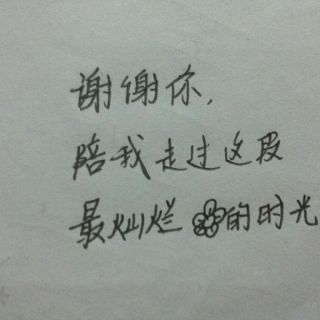 谢谢你,
陪我走过这段
最灿烂的时光